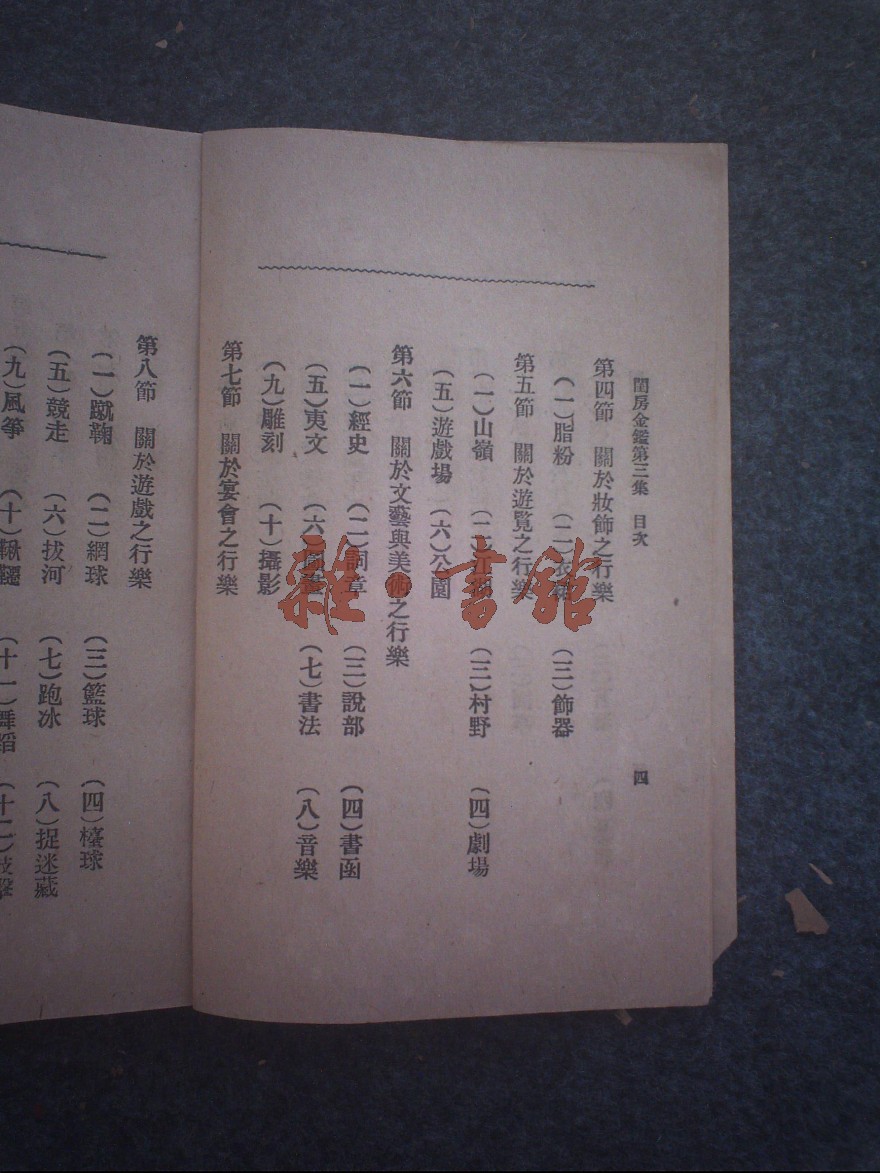 閨房金鑑第三集 目次 四
第四節 關於妝飾之行樂
(一)脂粉 (二)衣裙 (三)飾器
第五節 關於遊覽之行樂
(一)山嶺 (二)江湖 (三)村野 (四)劇場
(五)遊戲場 (六)公園
第六節 關於文藝與美術之行樂
(一)經史 (二)詞章 (三)說部 (四)書函
(五)夷文 (六)圖畫 (七)書法 (八)音樂
(九)雕刻 (十)攝影
第七節 關於宴會之行樂
第八節 關於遊戲之行樂
(一)蹴鞠 (二)網球 (三)籃球 (四)檯球
(五)競走 (六)拔河 (七)跑冰 (八)捉迷藏
(九)風箏 (十)鞦韆 (十一)舞蹈 (十二)技擊
雜·書館